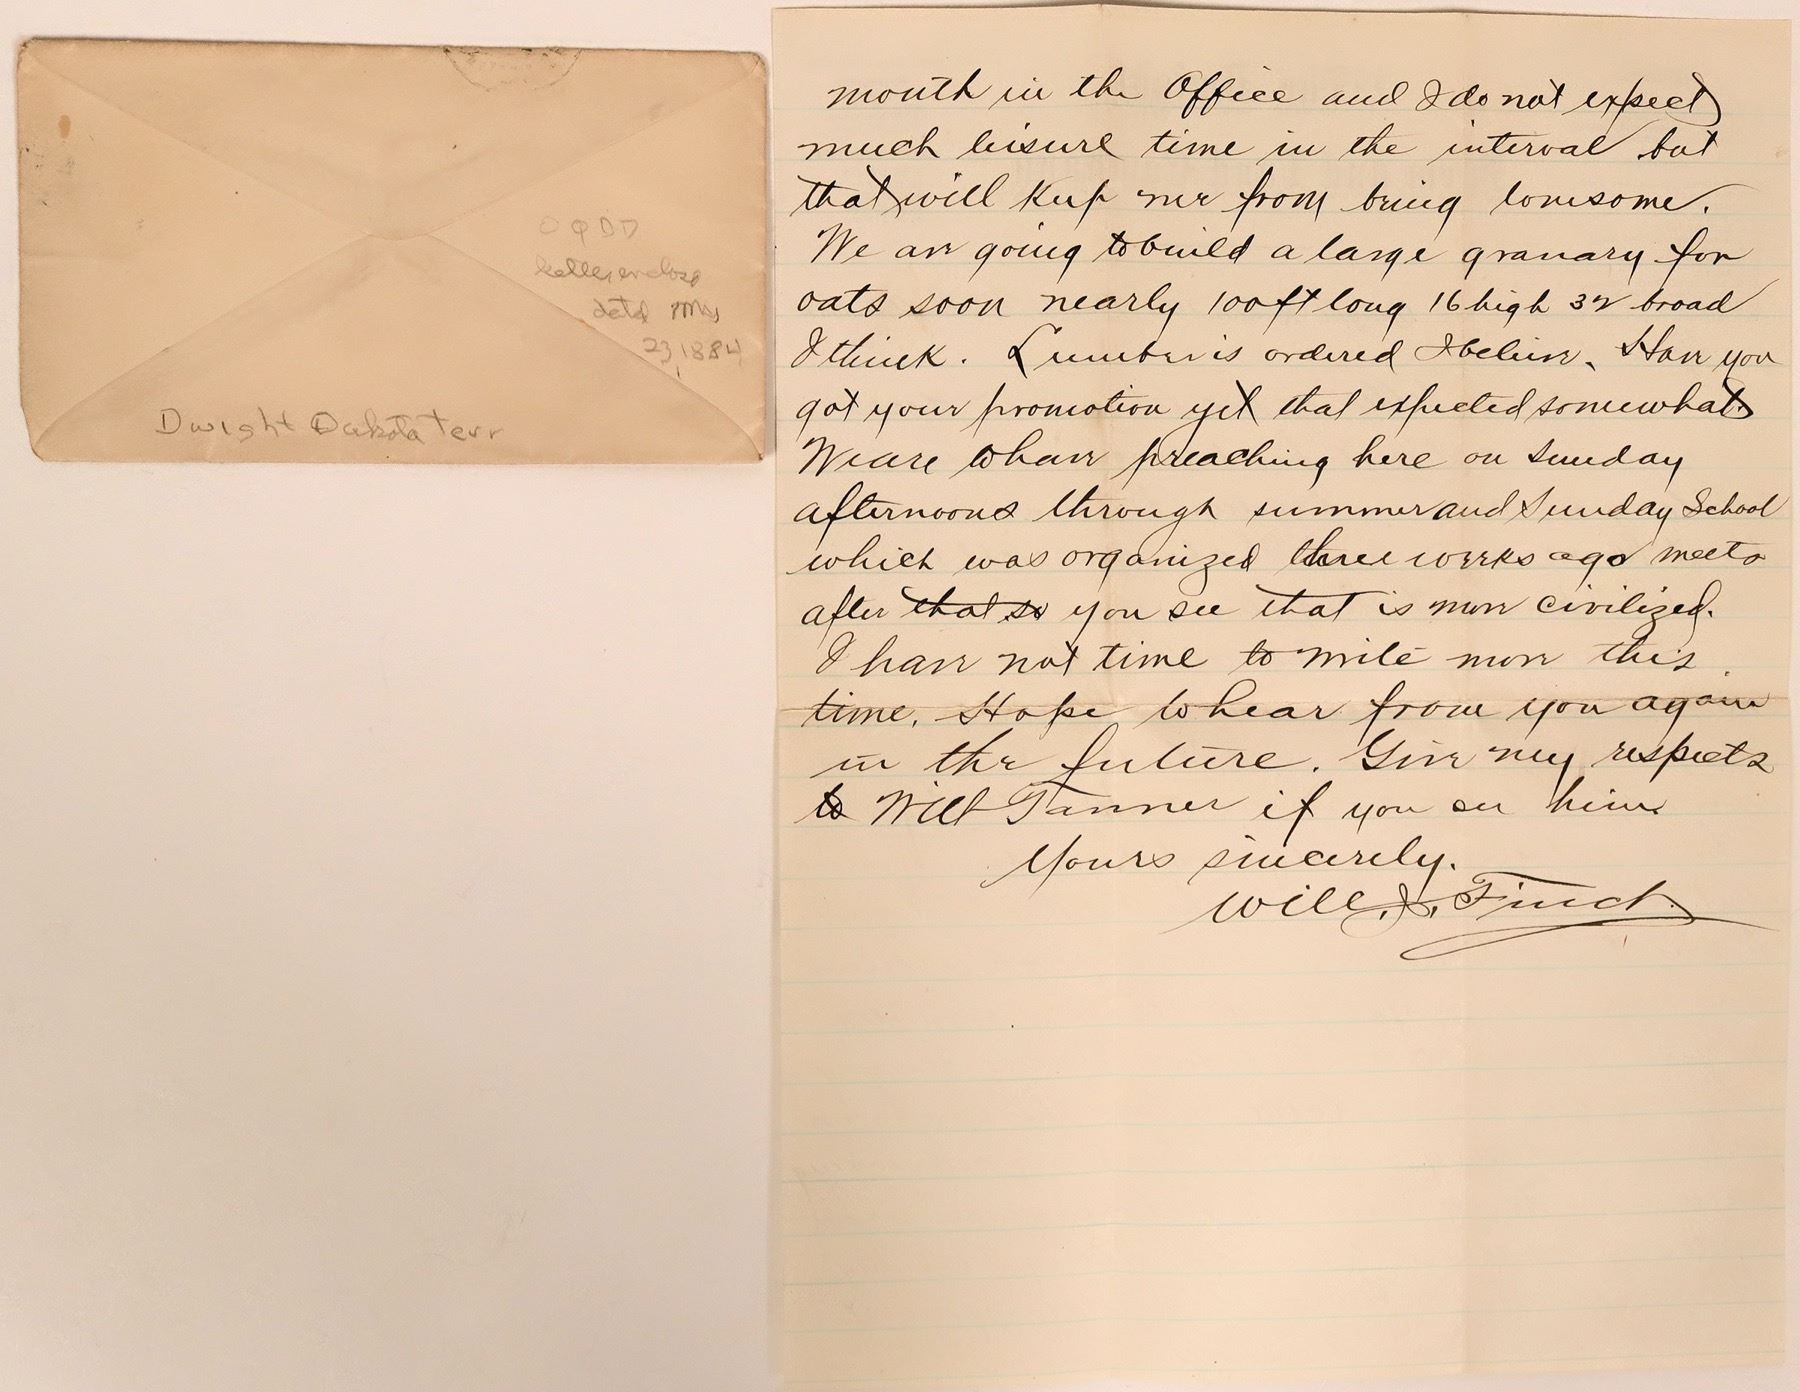 O Q D D
letter enclosed
datd May
23, 1884
Dwight Dakota Terr
month in the Office and I do not expect
much leisure time in the interval but
that will keep me from being lonesome.
We are going to build a large granary for
oats soon nearly 100 ft long 16 high 32 broad
I think. Lumber is ordered I believe. Have you
got your promotion yet that expected somewhat.
We are to have preaching here on Sunday
afternoons through summer and Sunday School
which was organized three weeks ago meets
after that so you see that is more civilized.
I have not time to write more this
time. Hope to hear from you again
in the future. Give my respects
to Will Tanner if you see him.
Yours sincerely.
Will. J. Finch.